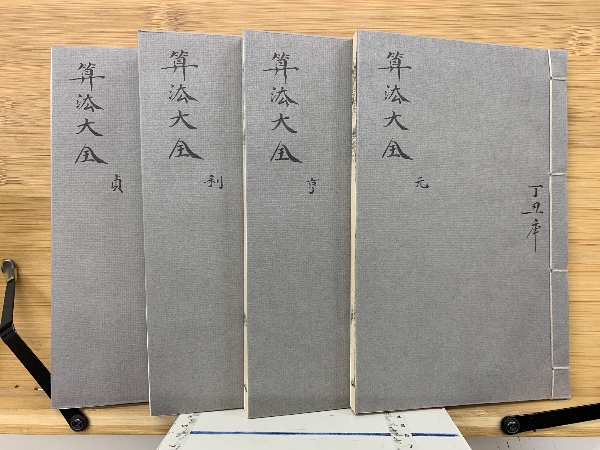 算法大全
元
丁丑年
算法大全
亨
算法大全
利
算法大全
貞